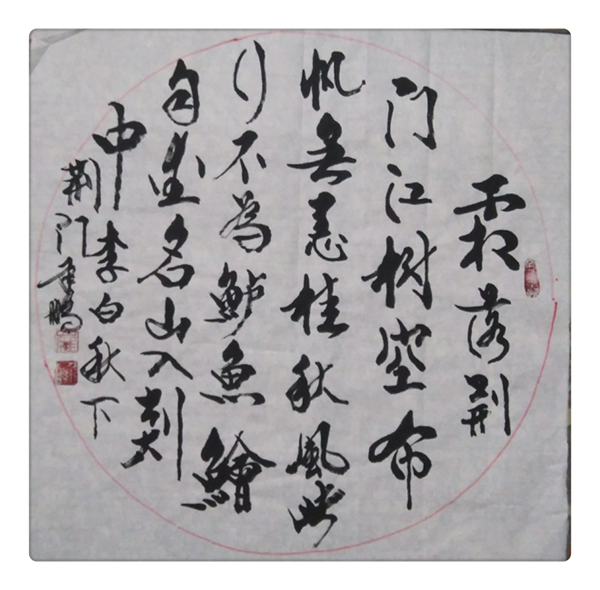 霜落荆
门江树空布
帆無恙桂秋風此
行不為鲈魚鱠
自爱名山入剡
中李白秋下
荆门李鹏